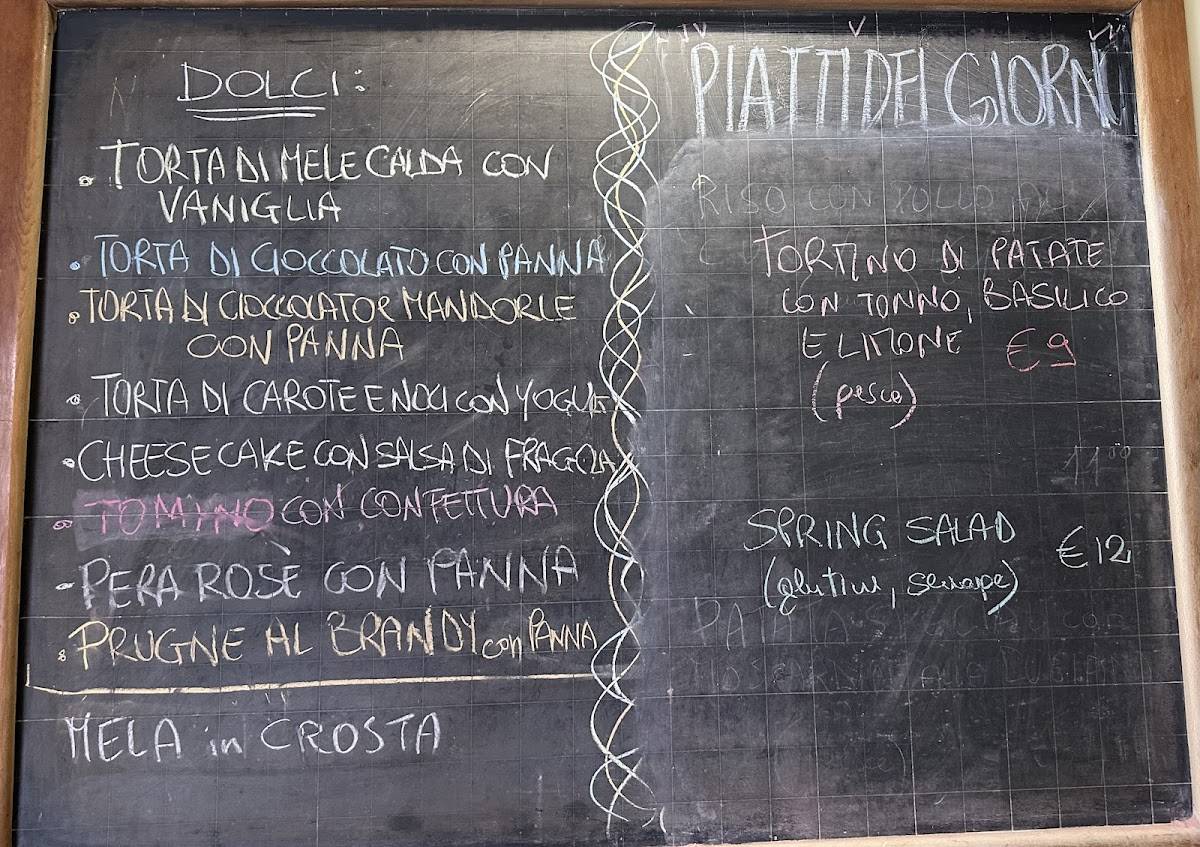 DOLCI:
TORTA DI MELE CALDA CON
VANIGLIA
TORTA DI CIOCCOLATO CON PANNA
TORTA DI CIOCCOLATO e MANDORLE
CON PANNA
TORTA DI CAROTE E NOCI CON YOGUE
CHEESE CAKE CON SALSA DI FRAGOLA
TOMINO CON CONFETTURA
PERA ROSÈ CON PANNA
PRUGNE AL BRANDY con PANNA
MELA in CROSTA
PIATTI DEI GIORNI
RISO CON POLLO
TORTINO DI PATATE
CON TONNO, BASILICO
E LIMONE €9
(pesce)
11.00
SPRING SALAD €12
(glutine, senape)